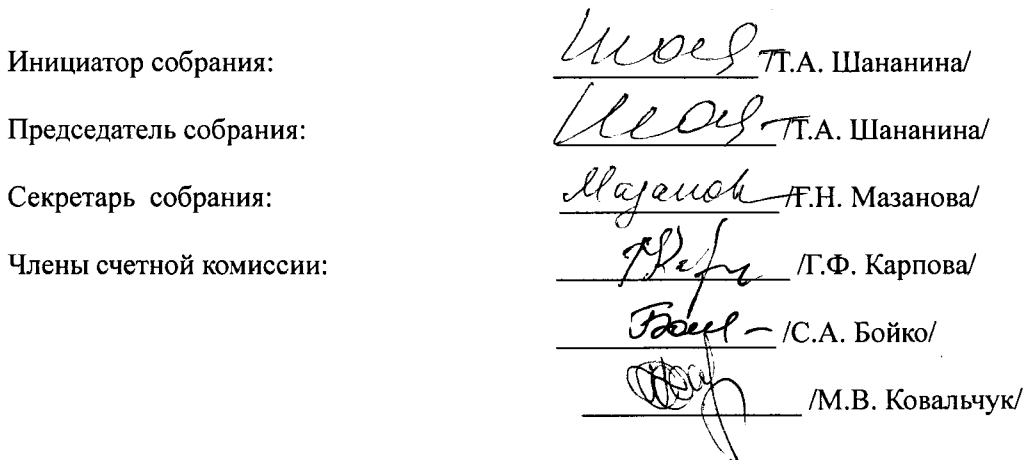 Инициатор собрания: /Т.А. Шананина/
Председатель собрания: /Т.А. Шананина/
Секретарь собрания: /Г.Н. Мазанова/
Члены счетной комиссии: /Г.Ф. Карпова/
/С.А. Бойко/
/М.В. Ковальчук/